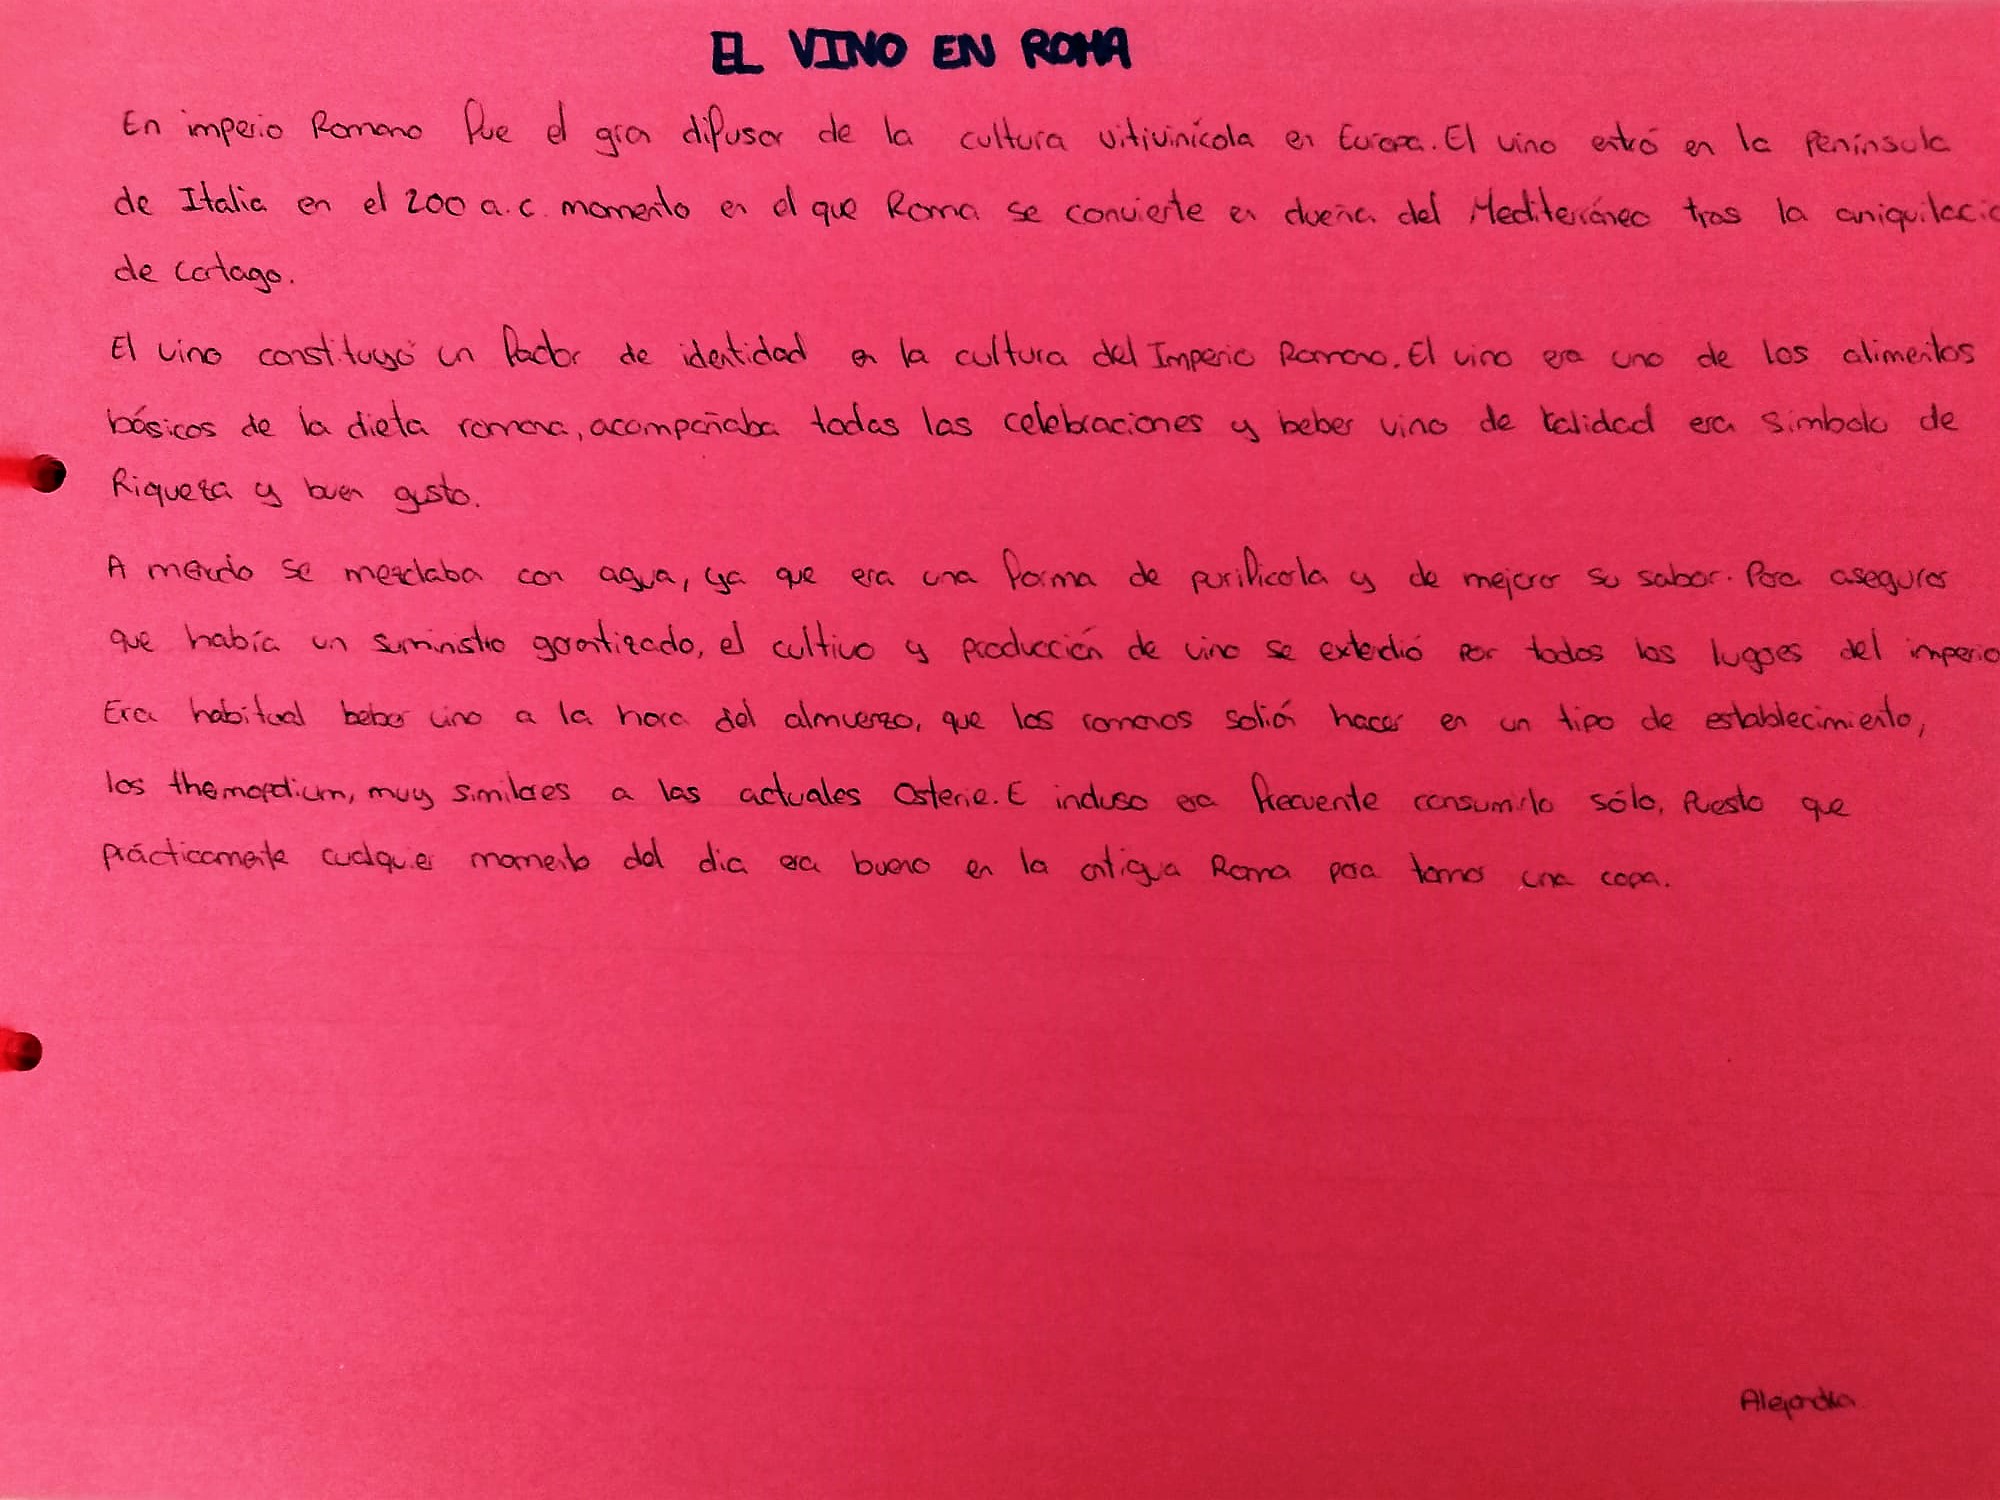 EL VINO EN ROMA
En imperio Romano fue el gran difusor de la cultura vitivinícola en Europa. El vino entró en la Península
de Italia en el 200 a.c. momento en el que Roma se convierte en dueña del Mediterráneo tras la aniquilació
de Cartago.
El vino constituyó un factor de identidad en la cultura del Imperio Romano. El vino era uno de los alimentos
básicos de la dieta romana, acompañaba todas las celebraciones y beber vino de calidad era simbolo de
Riqueza y buen gusto.
A menudo se mezclaba con agua, ya que era una forma de purificarla y de mejorar su sabor. Para asegurar
que había un suministro garantizado, el cultivo y producción de vino se extendió por todos los lugares del imperio
Era habitual beber vino a la hora del almuerzo, que los romanos solían hacer en un tipo de establecimiento,
los themopdium, muy similares a las actuales Osterie. E incluso era frecuente consumirlo sólo, Puesto que
prácticamente cualquier momento del dia era bueno en la antigua Roma para tomar una copa.
Alejandra